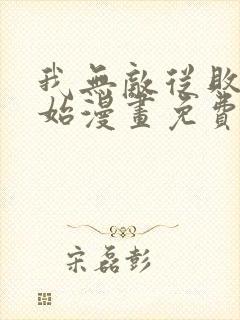 我無敵從敗
始漫畫免費
宋磊彭